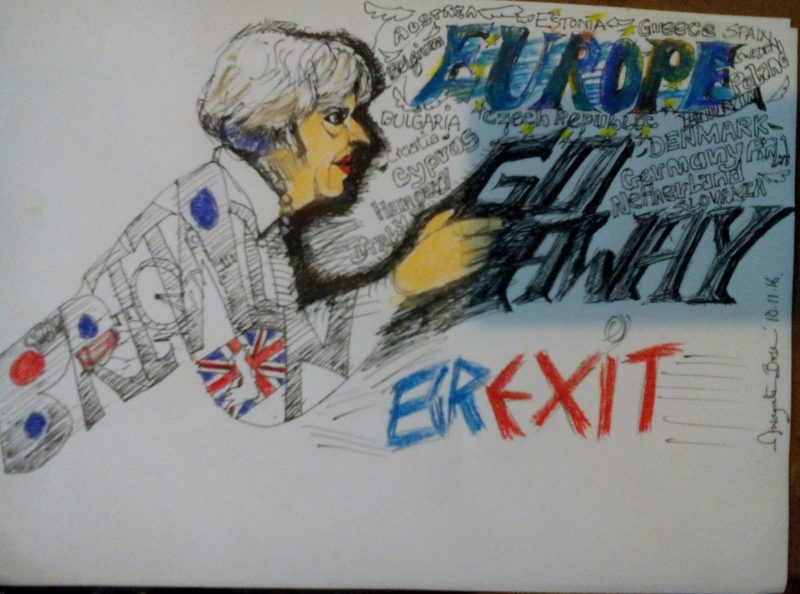 AUSTRIA ESTONIA Greece SPAIN
Belgium EUROPE Sweden
Poland
BULGARIA Czech Republic
Croatia DENMARK
Cyprus GO Germany
Hungary Netherland
SLOVAKIA
AWAY
BRITAIN
BREXIT
10.11.16.